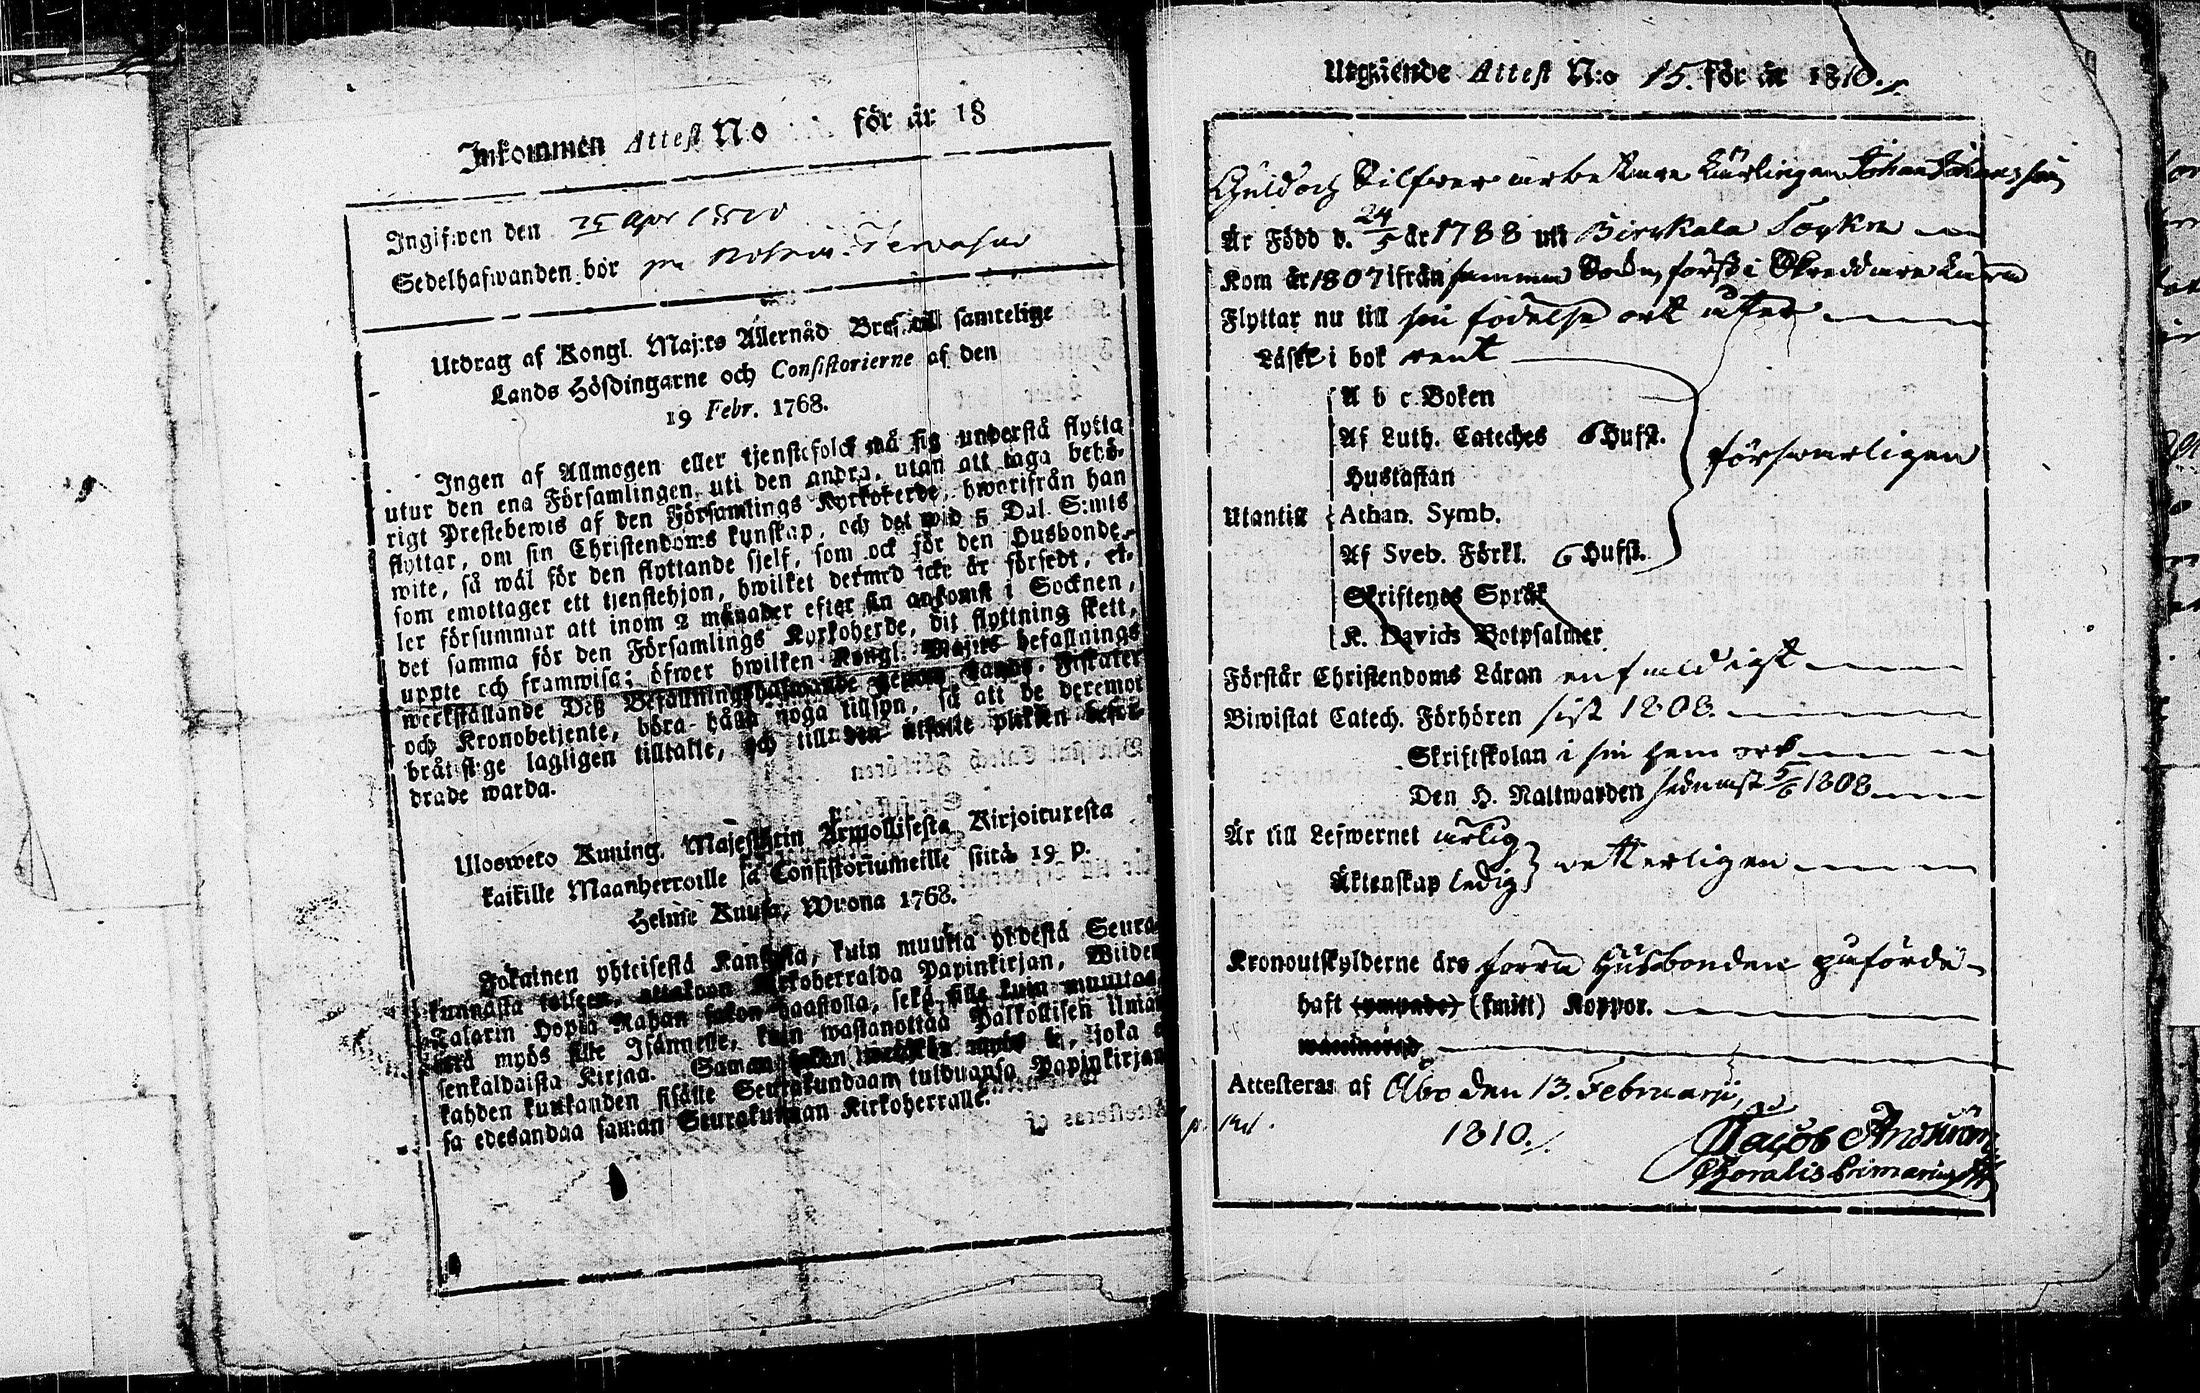 Inkommen Attest N:o för år 18
Ingifwen den 25 Apr 1810
Sedelhafwanden bor
Utdrag af Kongl. Maj:ts Allernåd Bref till samtelige
Lands Höfdingarne och Consistorierne af den
19 Febr. 1768.
Ingen af Allmogen eller tjenstefolck må sig understå flytta
utur den ena Församlingen uti den andra, utan att taga behö-
rigt Prestebewis af den Församlings Kyrkoherde, hworifrån han
flyttar, om sin Christendoms kunskap, och det wid 5 Dal. S:mts
wite, så wäl för den flyttande sjelf, som ock för den Husbonde,
som emottager ett tjenstehjon, hwilket dermed icke är försedt, el-
ler försummar att inom 2 månader efter sin ankomst i Socknen,
det samma för den Församlings Kyrkoherde, dit flyttning skett,
uppte och framwisa; öfwer hwilken Kongl. Maj:ts befallnings
werkställande Deß Befallningshafwande genom Lands-Fiskaler
och Kronobetjente, böra hafwa noga tillsyn, så att de deremot
brätslige lagligen tilltalte, och till den utsatte plikten befor-
drade warda.
Uloswето Kuning. Majestetin Armollisesta Kirjoituxesta
kaikille Maanherroille ja Consistoriumeille siitä 19 p.
Helme Kuusa, Wuona 1768.
Jokainen yhteisestä Kansasta, kuin muutta yhdestä Seura-
kunnasta toiseen, ottakoon Kirkoherralda Papinkirjan, Wiiden
Talarin Hopia Rahan sakon haastolla, sekä sille kuin muuttaa,
että myös sille Isännelle, kuin wastanottaa Palkollisen ilman
senkaldaista Kirjaa. Saman sakon myös se, joka ei
kahden kuukauden sisälle Seurakundaan tulduansa Papinkirjan-
sa edesandaa saman Seurakunnan Kirkoherralle.
Utgående Attest N:o 15. för år 1810.
Guld och Silfver arbetare Lärlingen Johan Johansson
Är Född d. 24/5 år 1788 uti Birckala Sockn
Kom år 1807 ifrån samma Sockn, först i Skreddare Lära
Flyttar nu till sin födelse ort åter
Läste i bok rent
A b c Boken
Af Luth. Cateches 6 Hufst.
Hustaflan
försvarligen
Utantill
Athan. Symb.
Af Sveb. Förkl. 6 Hufst.
Skriftenes Språk
K. Davids Botpsalmer
Förstår Christendoms Läran enfaldigt
Biwistat Catech. Förhören sist 1808.
Skriftskolan i sin hem ort
Den H. Nattwarden sednast 5/6 1808
Är till Lefwernet ärlig
Äktenskap ledig
vetterligen
Kronoutskylderne äro förra Husbonden påförde
haft (ympade) (smitt) Koppor.
Attesteras af Åbo den 13. Februarii,
1810.
Jacob